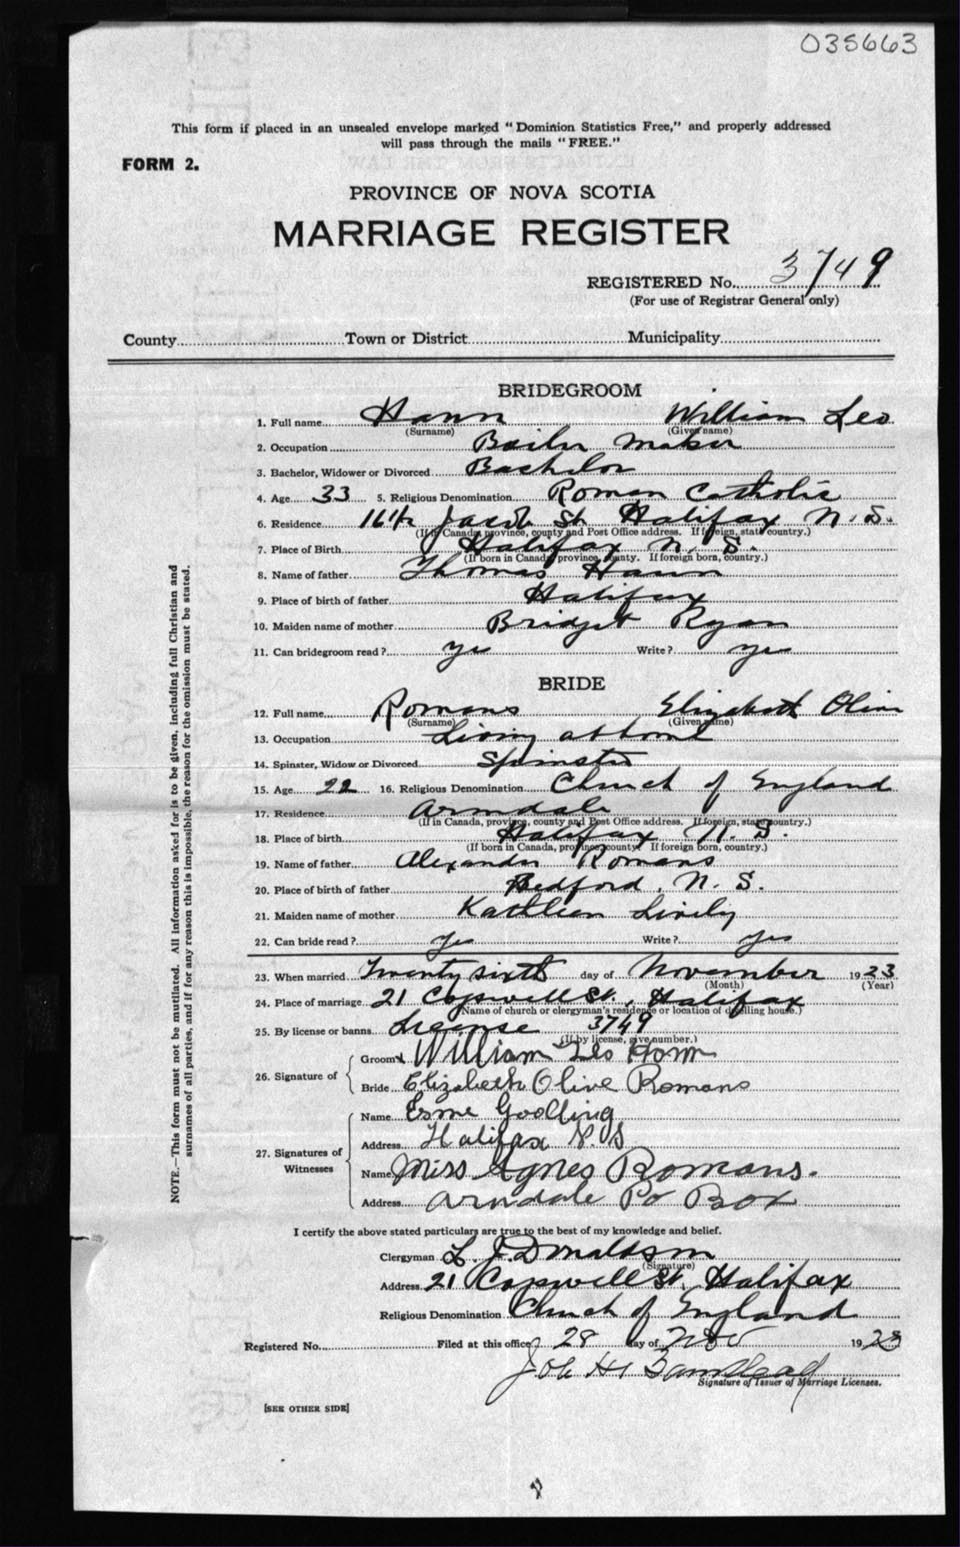 035663
This form if placed in an unsealed envelope marked "Dominion Statistics Free," and properly addressed
will pass through the mails "FREE."
FORM 2.
PROVINCE OF NOVA SCOTIA
MARRIAGE REGISTER
REGISTERED No. 3749
(For use of Registrar General only)
County Town or District Municipality
BRIDEGROOM
1. Full name Hann William Leo
(Surname) (Given name)
2. Occupation Boiler Maker
3. Bachelor, Widower or Divorced Bachelor
4. Age 33 5. Religious Denomination Roman Catholic
6. Residence Jacob St. Halifax N.S.
(If in Canada, province, county and Post Office address. If foreign, state country.)
7. Place of Birth Halifax N.S.
(If born in Canada, province, county. If foreign born, country.)
8. Name of father Thomas Hann
9. Place of birth of father Halifax
10. Maiden name of mother Bridget Ryan
11. Can bridegroom read? yes Write? yes
BRIDE
12. Full name Romans Elizabeth Olive
(Surname) (Given name)
13. Occupation Living at home
14. Spinster, Widow or Divorced Spinster
15. Age 22 16. Religious Denomination Church of England
17. Residence Armdale
(If in Canada, province, county and Post Office address. If foreign, state country.)
18. Place of birth Halifax N.S.
(If born in Canada, province, county. If foreign born, country.)
19. Name of father Alexander Romans
20. Place of birth of father Bedford, N.S.
21. Maiden name of mother Kathleen Lively
22. Can bride read? Yes Write? Yes
23. When married Twenty sixth day of November 1923
(Month) (Year)
24. Place of marriage 21 Copswell St., Halifax
(Name of church or clergyman's residence or location of dwelling house.)
25. By license or banns License 3749
(If by license, give number.)
26. Signature of
Groom William Leo Hann
Bride Elizabeth Olive Romans
27. Signatures of Witnesses
Name Esme Goodling
Address Halifax N.S
Name Miss Agnes Romans.
Address Armdale Po Box
I certify the above stated particulars are true to the best of my knowledge and belief.
Clergyman L. J. Donaldson
(Signature)
Address 21 Copswell St. Halifax
Religious Denomination Church of England
Registered No. Filed at this office 28 day of Nov 1923
Signature of Issuer of Marriage Licenses.
[SEE OTHER SIDE]
NOTE.—This form must not be mutilated. All information asked for is to be given, including full Christian and
surnames of all parties, and if for any reason this is impossible, the reason for the omission must be stated.